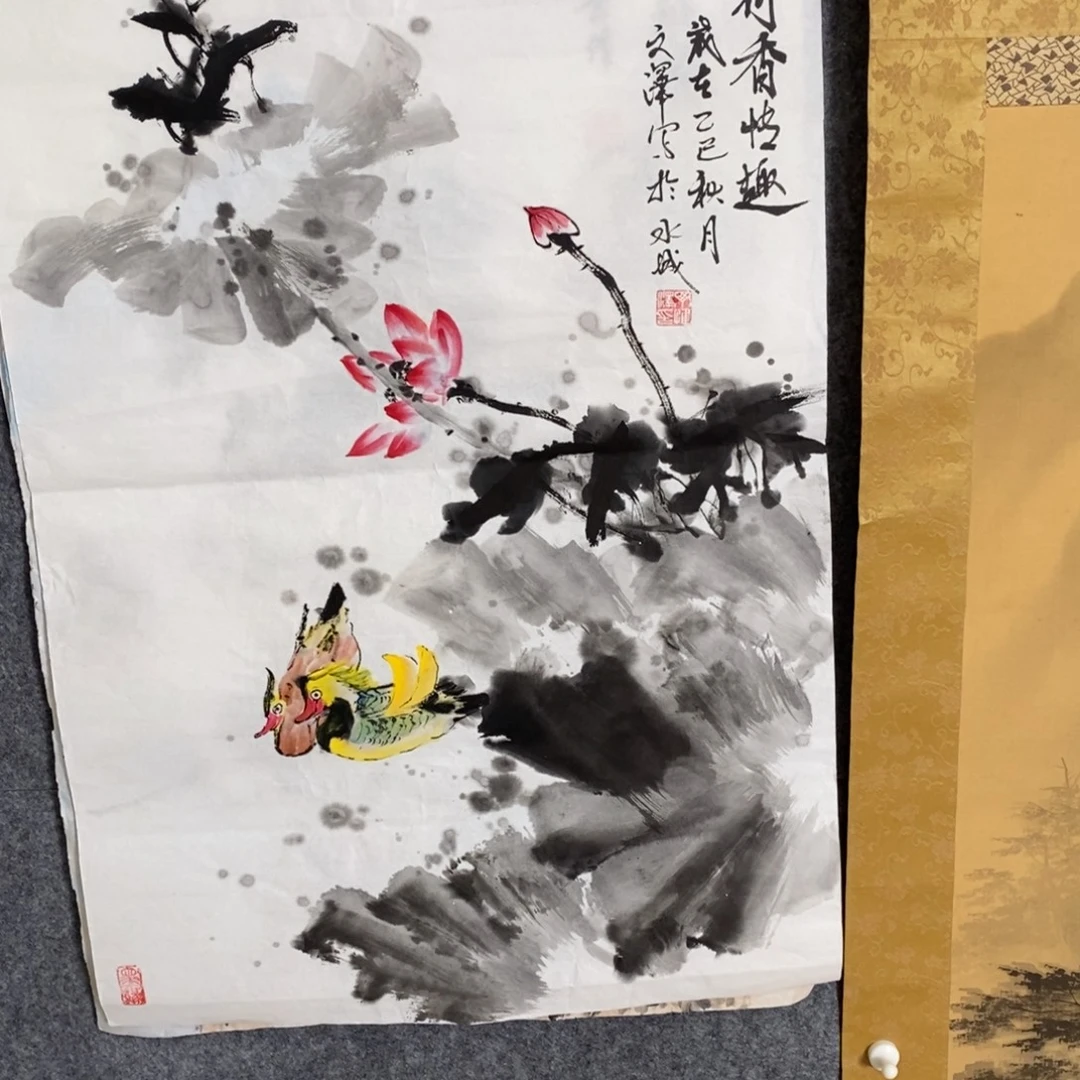 荷香情趣
歲在乙巳秋月
文澤写於水城